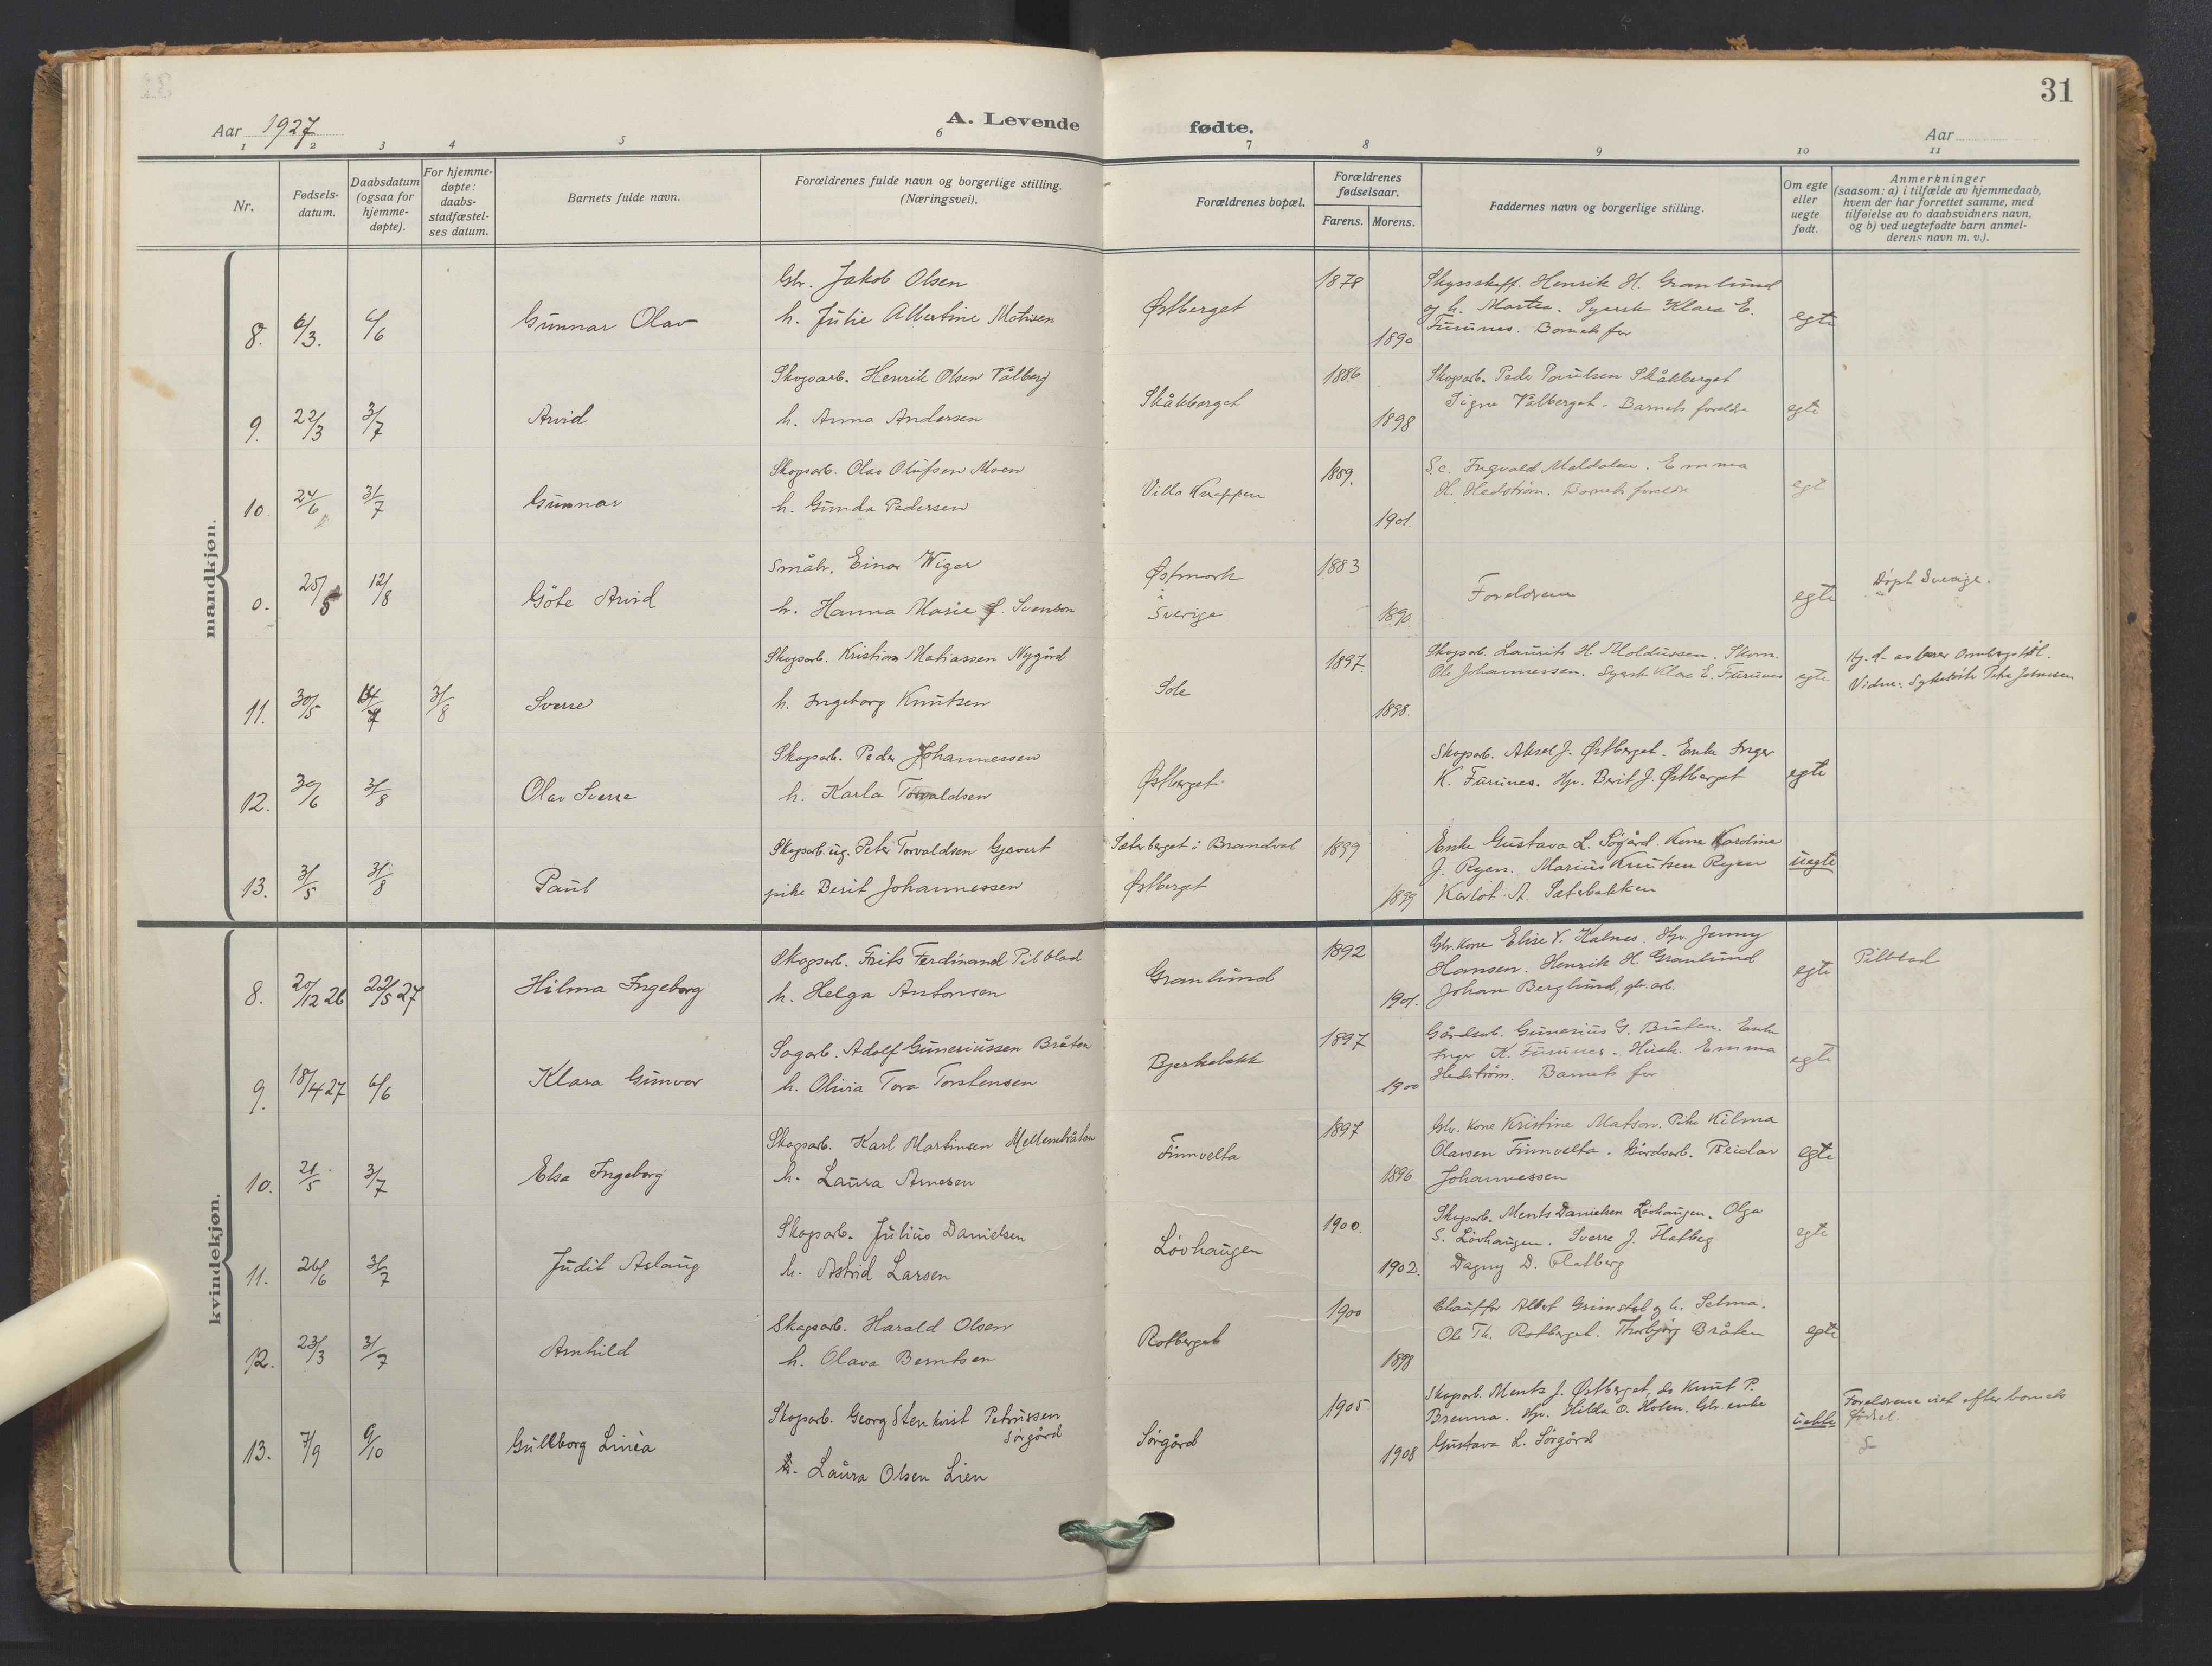 31
Aar 1927
A. Levende fødte.
Aar
1 2 3 4 5 6 7 8 9 10 11
Nr.
Fødsels-
datum.
Daabsdatum
(ogsaa for
hjemme-
døpte).
For hjemme-
døpte:
daabs-
stadfæstel-
ses datum.
Barnets fulde navn.
Forældrenes fulde navn og borgerlige stilling.
(Næringsvei).
Forældrenes bopæl.
Forældrenes
fødselsaar.
Farens. Morens.
Faddernes navn og borgerlige stilling.
Om egte
eller
uegte
født.
Anmerkninger
(saasom: a) i tilfælde av hjemmedaab,
hvem der har forrettet samme, med
tilføielse av to daabsvidners navn,
og b) ved uegtefødte barn anmel-
derens navn m. v.).
mandkjøn.
8. 6/3. 6/6 Gunnar Olav
Gbr. Jakob Olsen
h. Julie Albertine Mathisen
Østberget
1878
1890
Skysskaff. Henrik H. Granlund
og h. Martea. Syersk Klara E.
Furunes. Barnets far
egte
9. 22/3 3/7 Arvid
Skogsarb. Henrik Olsen Vålberg
h. Anna Andersen
Skåkberget
1886
1898
Skogsarb. Peder Paulsen Skåkberget
Signe Vålberget. Barnets foreldre
egte
10 24/6 31/7 Gunnar
Skogsarb. Olav Olufsen Moen
h. Gunda Pedersen
Villa Knappen
1889.
1901.
S.c. Ingvald Meldalen. Emma
H. Hedström. Barnets foreldre
egte
0. 25/5 12/8 Göte Arvid
Småbr. Einar Wiger
h. Hanna Marie f. Svenson
Østmark
i
Sverige
1883
1890.
Foreldrene
egte
Döpt i Sverige.
11. 30/5 31/8 Sverre
Skogsarb. Kristian Matiassen Nygård
h. Ingeborg Knutsen
Sole
1897.
1898.
Skogsarb. Laurits H. Moldussen. Skom.
Ole Johannessen. Syersk Klara E. Furunes
egte
Vidne: Sykesöster Petra Johnesen
12. 30/6 31/8 Olav Sverre
Skogsarb. Peder Johannessen
h. Karla Torvaldsen
Østberget.
Skogsarb. Aksel J. Østberget. Enke Inger
K. Furunes. Hp. Berit J. Østberget
egte
13. 31/5 31/8 Paul
Skogsarb. ug. Peter Torvaldsen Gjavert
pike Berit Johannessen
Sæterberget i Brandval
Østberget
1899
1899
Enke Gustava L. Sögård. Kone Karoline
J. Ryen. Marius Knutsen Ryen
Karlot A. Sæterbakken
uegte
kvindekjøn.
8. 20/12 26 22/5 27 Hilma Ingeborg
Skogsarb. Frits Ferdinand Pilblad
h. Helga Antonsen
Granlund
1892
1901.
Gbr. kone Elise V. Kalnes. Hp. Jenny
Hansen. Henrik H. Granlund
Johan Berglund, gbr. arb.
egte
Pilblad
9. 18/4 27 6/6 Klara Gunvor
Sagarb. Adolf Guneriussen Bråten
h. Olivia Tora Torstensen
Bjerkebekk
1897
1900
Gårdsarb. Gunerius G. Bråten. Enke
Inger K. Furunes. Hush. Emma
Hedström. Barnets far
egte
10. 21/5 3/7 Elsa Ingeborg
Skogsarb. Karl Martinsen Mellembråten
h. Laura Arnesen
Finnvelta
1897
1896
Gbr. kone Kristine Matson. Pike Kilma
Olavsen Finnvelta. Gårdsarb. Reidar
Johannessen
egte
11. 26/6 31/7 Judit Aslaug
Skogsarb. Julius Danielsen
h. Astrid Larsen
Lövhaugen
1900.
1902.
Skogsarb. Ments Danielsen Lövhaugen. Olga
S. Lövhaugen. Sverre J. Flatberg
Dagny D. Flatberg
egte
12. 23/3 31/7 Arnhild
Skogsarb. Harald Olsen
h. Olava Berntsen
Rotberget
1900
1898
Chauffør Albert Grimstøl og h. Selma.
Ole Th. Rotberget. Thorbjörg Bråten
egte
13. 7/9 9/10 Gullborg Linéa
Skogsarb. Georg Stenkvist Petrussen
Sørgård
h. Laura Olsen Lien
Sörgård
1905
1908
Skogsarb. Ments J. Østberget, do Knut P.
Brenna. Hp. Hilda O. Holen. Gbr. enke
Gustava L. Sörgård
uekte
Foreldrene viet efter barnets
födsel.